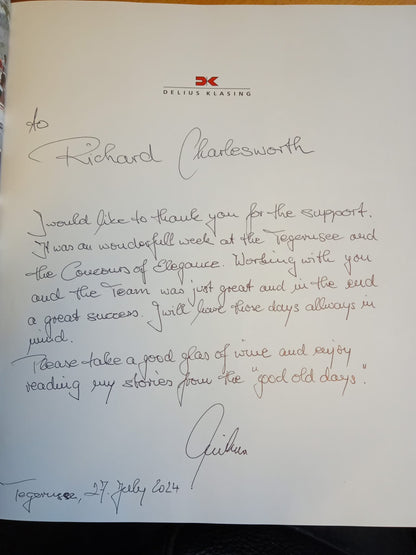 DELIUS KLASING
to
Richard Charlesworth
I would like to thank you for the support.
It was an wonderfull week at the Tegernsee and
the Concours of Elegance. Working with you
and the Team was just great and in the end
a great success. I will have those days allways in
mind.
Please take a good glas of wine and enjoy
reading my stories from the "good old days".
Tegernsee, 27. July 2024